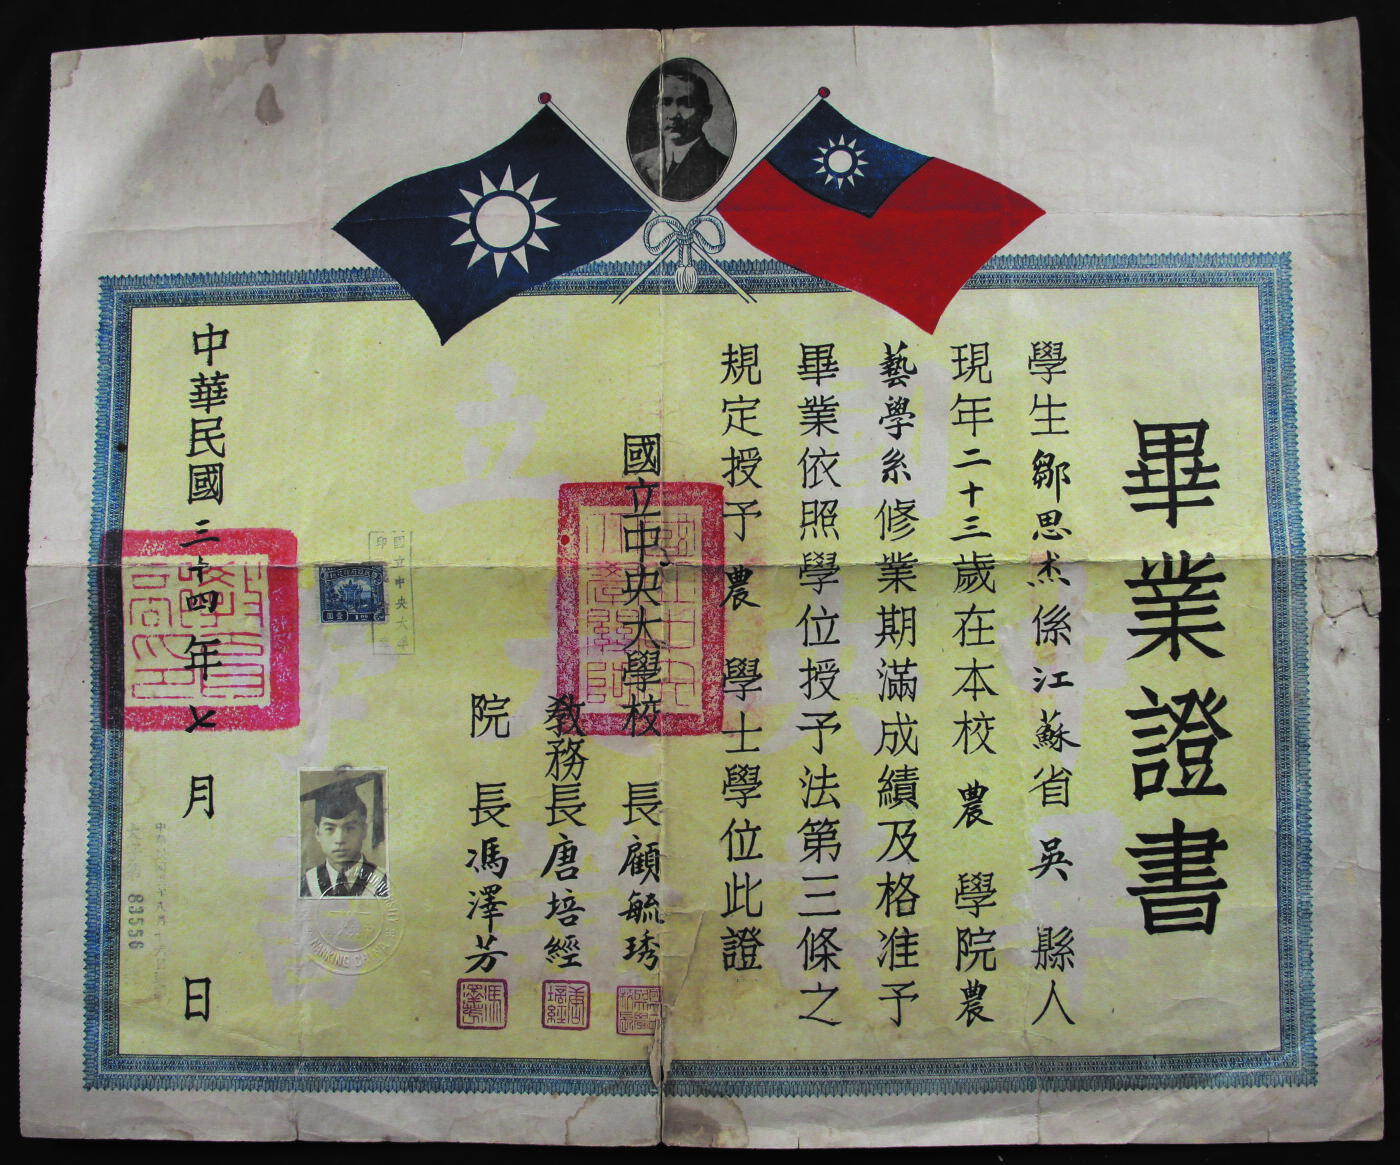 畢業證書
學生鄒思杰係江蘇省吳縣人
現年二十三歲在本校農學院農
藝學系修業期滿成績及格准予
畢業依照學位授予法第三條之
規定授予農學士學位此證
國立中央大學校長顧毓琇
教務長唐培經
院長馮澤芳
中華民國三十四年七月日
國立中央大學
印
83556
馮澤芳
唐培經
NANKING CHINA